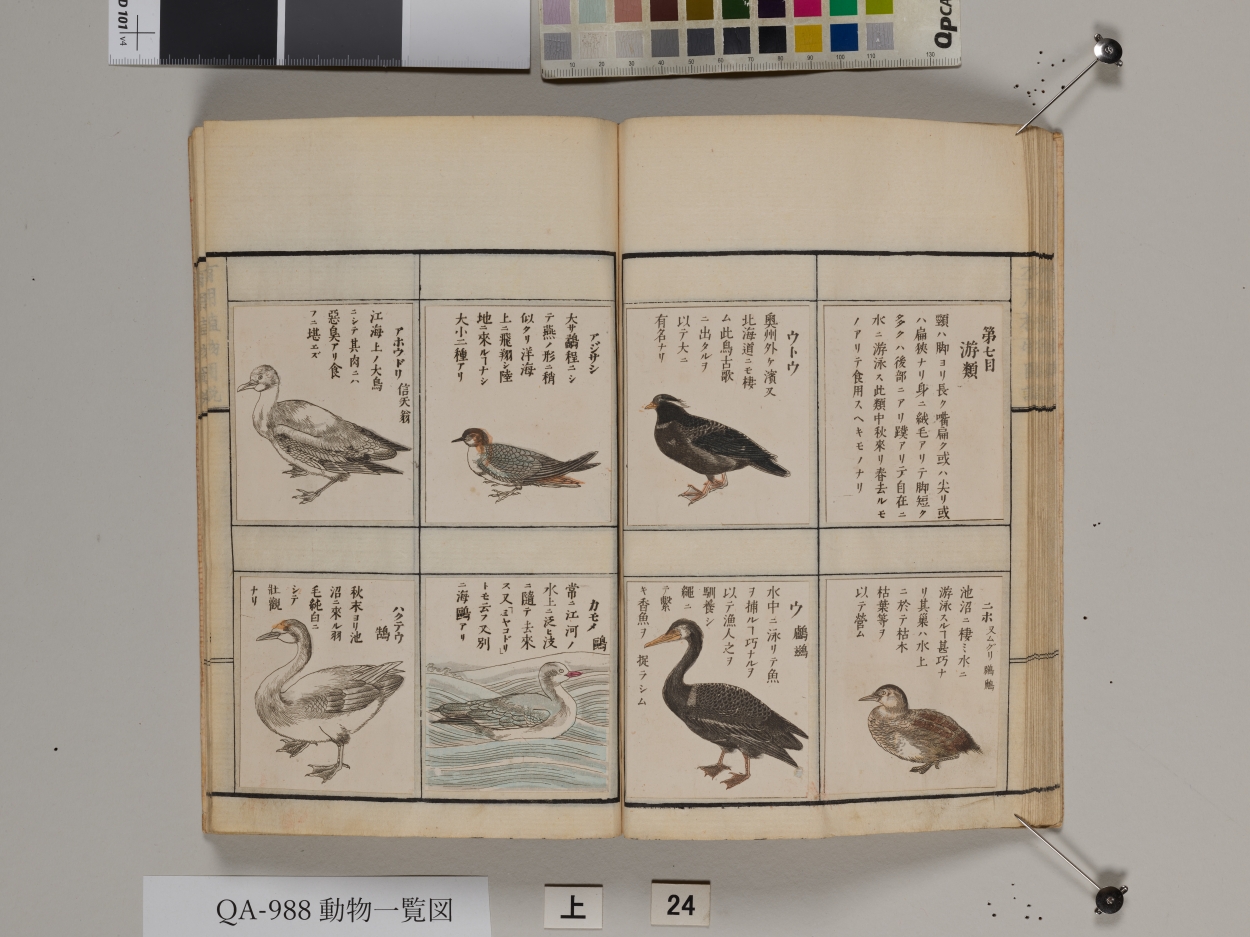 第七目
游類
頸ハ脚ヨリ長ク嘴扁ク或ハ尖リ或
ハ扁狹ナリ身ニ絨毛アリテ脚短ク
多クハ後部ニアリ蹼アリテ自在ニ
水ニ游泳ス此類中秋來リ春去ルモ
ノアリテ食用スヘキモノナリ
ウトウ
奥州外ケ濱又
北海道ニモ棲
ム此鳥古歌
ニ出タルヲ
以テ大ニ
有名ナリ
ニホ 又ムグリ 鸊鷉
池沼ニ棲ミ水ニ
游泳スルヿ甚巧ナ
リ其巣ハ水上
ニ於テ枯木
枯葉等ヲ
以テ營ム
ウ 鸕鷀
水中ニ泳リテ魚
ヲ捕ルヿ巧ナルヲ
以テ漁人之ヲ
馴養シ
繩ニ
テ繫
キ香魚ヲ捉ラシム
アジサシ
大サ鷭程ニシ
テ燕ノ形ニ稍
似タリ洋海
上ニ飛翔シ陸
地ニ來ルヿナシ
大小二種アリ
アホウドリ 信天翁
江海上ノ大鳥
ニシテ其肉ニハ
惡臭アリ食
フニ堪エズ
カモメ 鷗
常ニ江河ノ
水上ニ泛ヒ波
ニ隨テ去來
ス又「ミヤコドリ」
トモ云フ又別
ニ海鷗アリ
ハクテウ 鵠
秋末ヨリ池
沼ニ來ル羽
毛純白ニ
シテ
壯觀
ナリ
QA-988 動物一覧図
上
24